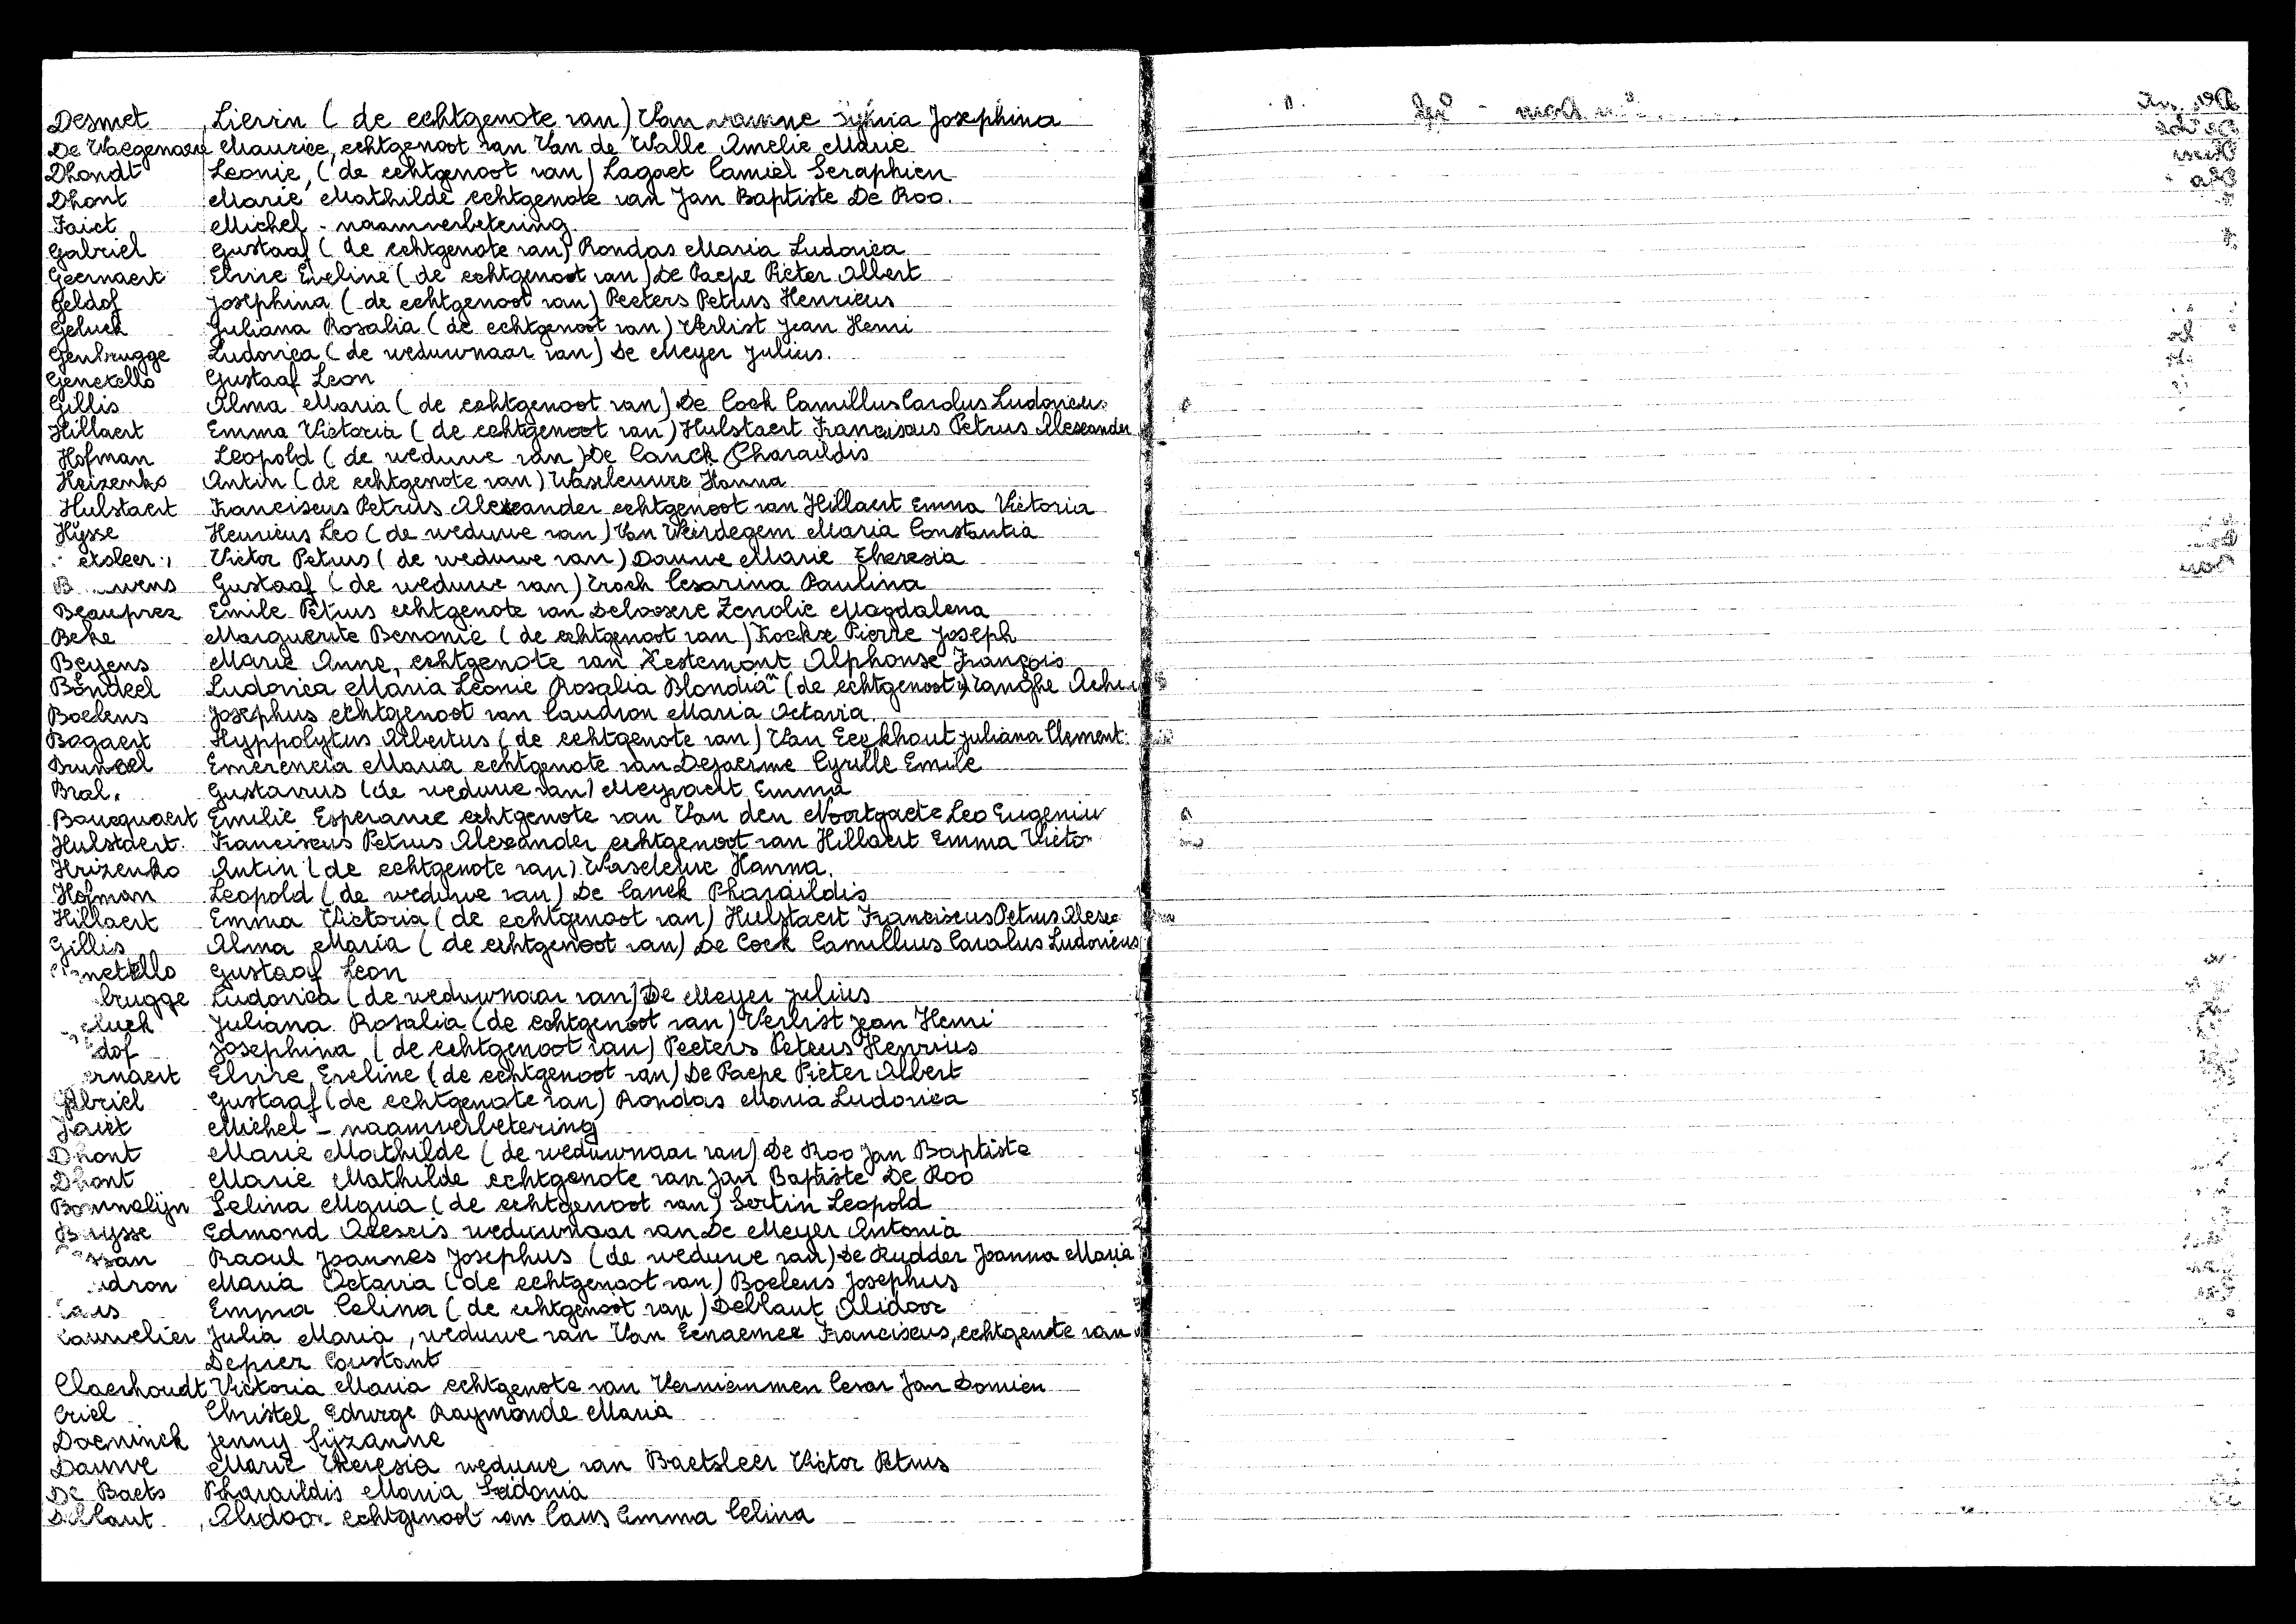 Desmet Lievin ( de echtgenote van) Van Josephina
De Waegenaere Maurice, echtgenoot van Van de Walle Amelie Marie
Dhondt Leonie, ( de echtgenoot van) Lagaet Camiel Seraphien
Dhont Marie Mathilde echtgenote van Jan Baptiste De Roo.
Faict Michel - naamverbetering
Gabriel Gustaaf ( de echtgenote van) Rondas Maria Ludovica
Geernaert Elvire Eveline ( de echtgenoot van) De Paepe Pieter Albert
Geldof Josephina ( de echtgenoot van) Peeters Petrus Henricus
Geluck Juliana Rosalia ( de echtgenoot van) Verlist Jean Henri
Genbrugge Ludovica ( de weduwnaar van) De Meyer Julius.
Genetello Gustaaf Leon
Gillis Alma Maria ( de echtgenoot van) De Cock Camillus Carolus Ludovicus
Hillaert Emma Victoria ( de echtgenoot van) Hulstaert Franciscus Petrus Alexander
Hofman Leopold ( de weduwe van) De Canck Pharaildis
Hrizenko Antin ( de echtgenote van) Hanna
Hulstaert Franciscus Petrus Alexander echtgenoot van Hillaert Emma Victoria
Hysse Henricus Leo ( de weduwe van) Van Weirdegem Maria Constantia
etsleer Victor Petrus ( de weduwe van) Dauwe Marie Theresia
B wens Gustaaf ( de weduwe van) Troch Cesarina Paulina
Beauprez Emile Petrus echtgenote van Deloosere Zenolie Magdalena
Beke Marguerite Benonie ( de echtgenoot van) Kockx Pierre Joseph
Beyens Marie Anne, echtgenote van Kestemont Alphonse François
Bondeel Ludovica Maria Leonie Rosalia Blondia" (de echtgenoot v) Tanghe Achi
Boelens Josephus echtgenoot van Caudron Maria Octavia
Bogaert Hyppolytus Albertus ( de echtgenote van) Van Eeckhaut Juliana Clement
Bruneel Emerencia Maria echtgenote van Dejaerme Cyrille Emile
Bral. Gustavus (de weduwe van) Meyvaert Emma
Boucquaert Emilie Esperance echtgenote van Van den Noortgaete Leo Eugeniu
Hulstaert. Franciscus Petrus Alexander echtgenoot van Hillaert Emma Victo
Hrizenko Antin ( de echtgenote van) Hanna.
Hofman Leopold ( de weduwe van) De Canck Pharaildis
Hillaert Emma Victoria ( de echtgenoot van) Hulstaert Franciscus Petrus Alex
Gillis Alma Maria ( de echtgenoot van) De Cock Camillius Carolus Ludovicus
netello Gustaaf Leon
brugge Ludovica ( de weduwnaar van) De Meyer Julius
eluck Juliana Rosalia (de echtgenoot van) Verlist Jean Henri
dof Josephina ( de echtgenoot van) Peeters Petrus Henricus
ernaert Elvire Eveline ( de echtgenoot van) De Paepe Pieter Albert
Gabriel Gustaaf (de echtgenote van) Rondas Maria Ludovica
Faict Michel - naamverbetering
Dhont Marie Mathilde ( de weduwnaar van) De Roo Jan Baptiste
Dhont Marie Mathilde echtgenote van Jan Baptiste De Roo
Bonnelijn Selina Maria ( de echtgenoot van) Sertin Leopold
Buysse Edmond Alexis weduwnaar van De Meyer Antonia
san Raoul Joannes Josephus ( de weduwe van) De Rudder Joanna Maria
dron Maria Octavia ( de echtgenoot van) Boelens Josephus
aus Emma Celina ( de echtgenoot van) Deblaut Alidoor
Cauwelier Julia Maria , weduwe van Van Eenaemee Franciscus, echtgenote van
Deprez Constant
Claerhoudt Victoria Maria echtgenote van Verniemmen Cesar Jan Domien
Criel Christel Edwige Raymonde Maria
Daeninck Jenny Syzanne
Dauwe Marie Theresia weduwe van Baetsleer Victor Petrus
De Baets Pharaildis Maria Sidonia
Deblaut Alidoor echtgenoot van Caus Emma Celina